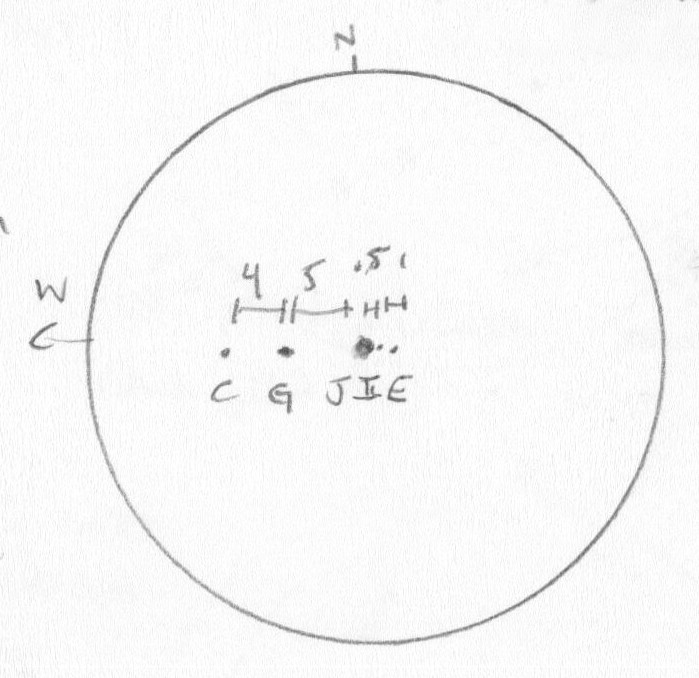 N
4 5 .5 1
W
C G J I E